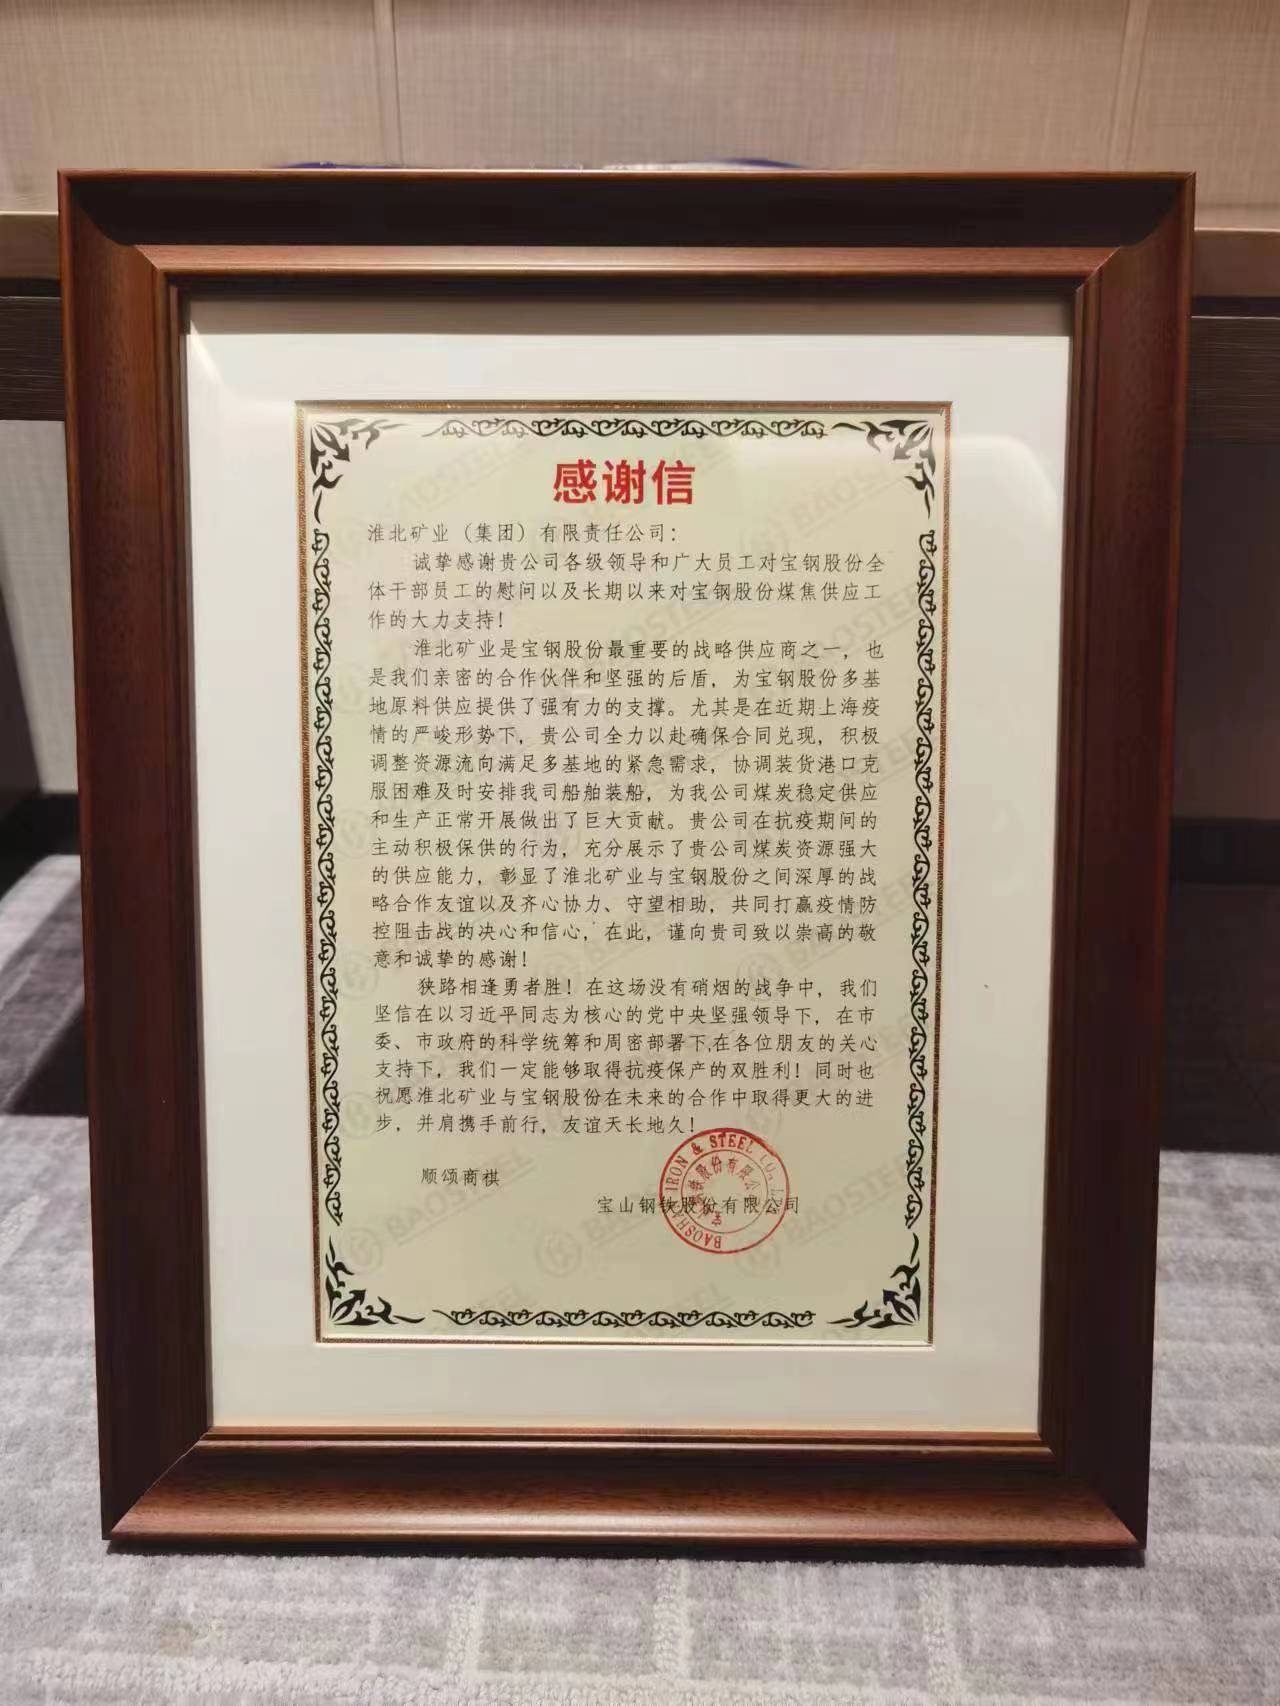 感谢信
淮北矿业（集团）有限责任公司：
诚挚感谢贵公司各级领导和广大员工对宝钢股份全
体干部员工的慰问以及长期以来对宝钢股份煤焦供应工
作的大力支持！
淮北矿业是宝钢股份最重要的战略供应商之一，也
是我们亲密的合作伙伴和坚强的后盾，为宝钢股份多基
地原料供应提供了强有力的支撑。尤其是在近期上海疫
情的严峻形势下，贵公司全力以赴确保合同兑现，积极
调整资源流向满足多基地的紧急需求，协调装货港口克
服困难及时安排我司船舶装船，为我公司煤炭稳定供应
和生产正常开展做出了巨大贡献。贵公司在抗疫期间的
主动积极保供的行为，充分展示了贵公司煤炭资源强大
的供应能力，彰显了淮北矿业与宝钢股份之间深厚的战
略合作友谊以及齐心协力、守望相助，共同打赢疫情防
控阻击战的决心和信心，在此，谨向贵司致以崇高的敬
意和诚挚的感谢！
狭路相逢勇者胜！在这场没有硝烟的战争中，我们
坚信在以习近平同志为核心的党中央坚强领导下，在市
委、市政府的科学统筹和周密部署下,在各位朋友的关心
支持下，我们一定能够取得抗疫保产的双胜利！同时也
祝愿淮北矿业与宝钢股份在未来的合作中取得更大的进
步，并肩携手前行，友谊天长地久！
顺颂商祺
宝山钢铁股份有限公司
IRON & STEEL CO.
BAOSTEEL